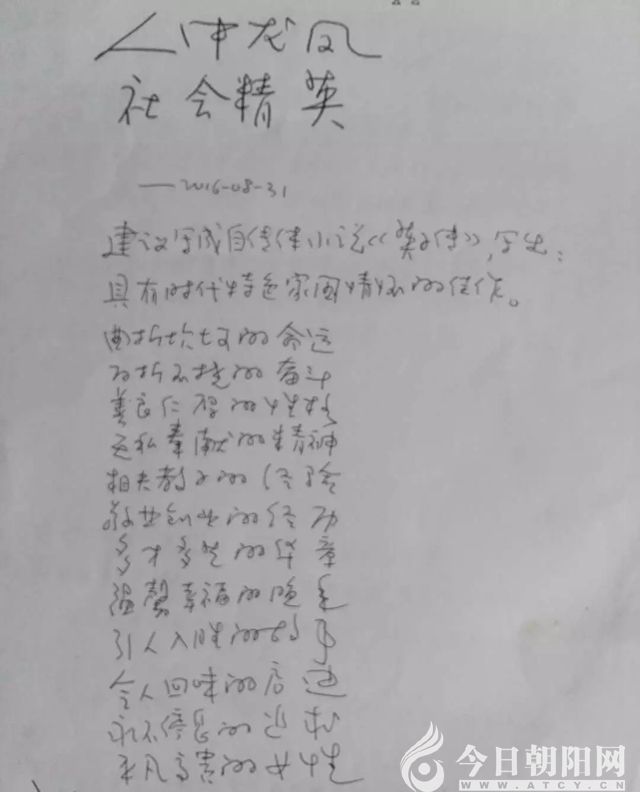 人中龙凤
社会精英
——2016-08-31
建议写成自传体小说《英子传》,写出:
具有时代特色家国情怀的佳作。
曲折坎坷的命运
百折不挠的奋斗
善良仁厚的性格
无私奉献的精神
相夫教子的经验
敬业创业的经历
多才多艺的华章
温馨幸福的晚年
引人入胜的故事
令人回味的
永不停息的
平凡高贵的女性
今日朝阳网
WWW.ATCY.CN